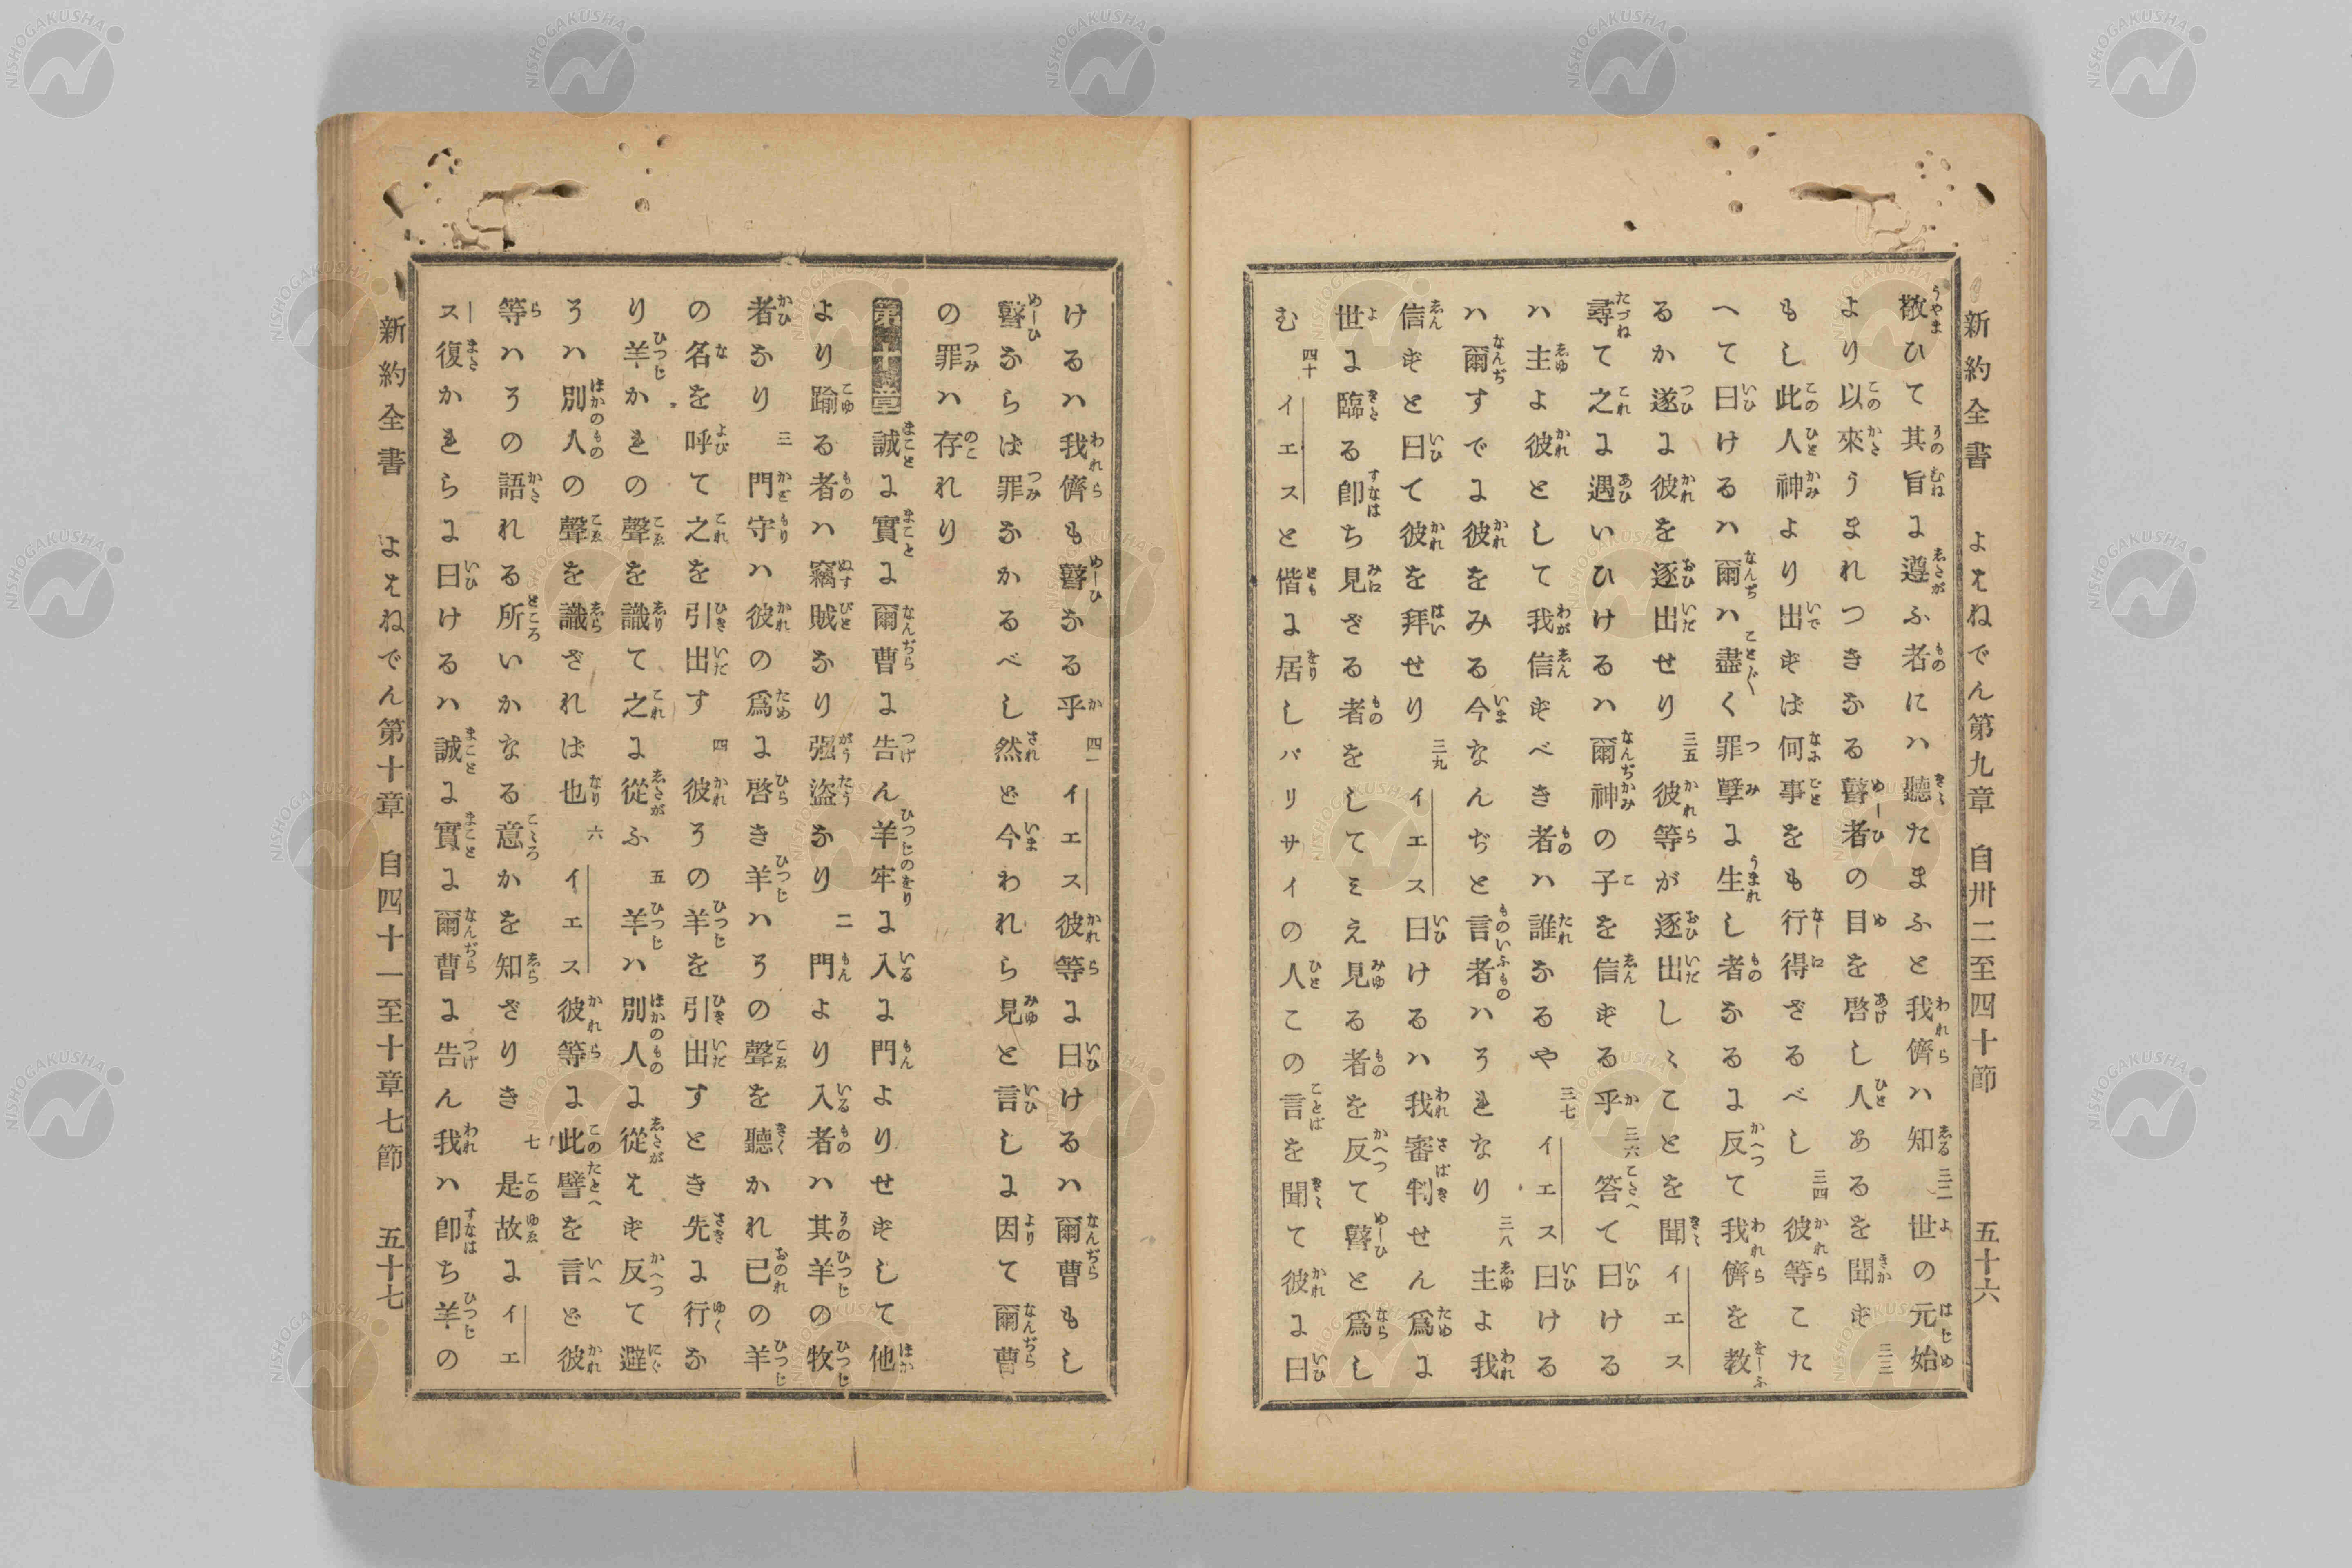 新約全書 よはねでん第九章 自卅二至四十節 五十六
敬ひて其旨に遵ふ者にハ聽たまふと我儕ハ知 三二 世の元始
より以來うまれつきなる瞽者の目を啓し人あるを聞ず 三三
もし此人神より出ずば何事をも行得ざるべし 三四 彼等こた
へて曰けるハ爾ハ盡く罪孽に生し者なるに反て我儕を教
るか遂に彼を逐出せり 三五 彼等が逐出しゝことを聞イエス
尋て之に遇いひけるハ爾神の子を信ずる乎 三六 答て曰ける
ハ主よ彼として我信ずべき者ハ誰なるや 三七 イエス曰ける
ハ爾すでに彼をみる今なんぢと言者ハそれなり 三八 主よ我
信ずと曰て彼を拜せり 三九 イエス曰けるハ我審判せん爲に
世に臨る卽ち見ざる者をしてミえ見る者を反て瞽と爲し
む 四十 イエスと偕に居しパリサイの人この言を聞て彼に曰
けるハ我儕も瞽なる乎 四一 イエス彼等に曰けるハ爾曹もし
瞽ならば罪なかるべし然ど今われら見と言しに因て爾曹
の罪ハ存れり
第十章 誠に實に爾曹に告ん羊牢に入に門よりせずして他
より踰る者ハ竊賊なり强盜なり 二 門より入者ハ其羊の牧
者なり 三 門守ハ彼の爲に啓き羊ハその聲を聽かれ己の羊
の名を呼て之を引出す 四 彼その羊を引出すとき先に行な
り羊かれの聲を識て之に從ふ 五 羊ハ別人に從はず反て避
そハ別人の聲を識ざれば也 六 イエス彼等に此譬を言ど彼
等ハその語れる所いかなる意かを知ざりき 七 是故にイエ
ス復かれらに曰けるハ誠に實に爾曹に告ん我ハ卽ち羊の
新約全書 よはねでん第十章 自四十一至十章七節 五十七